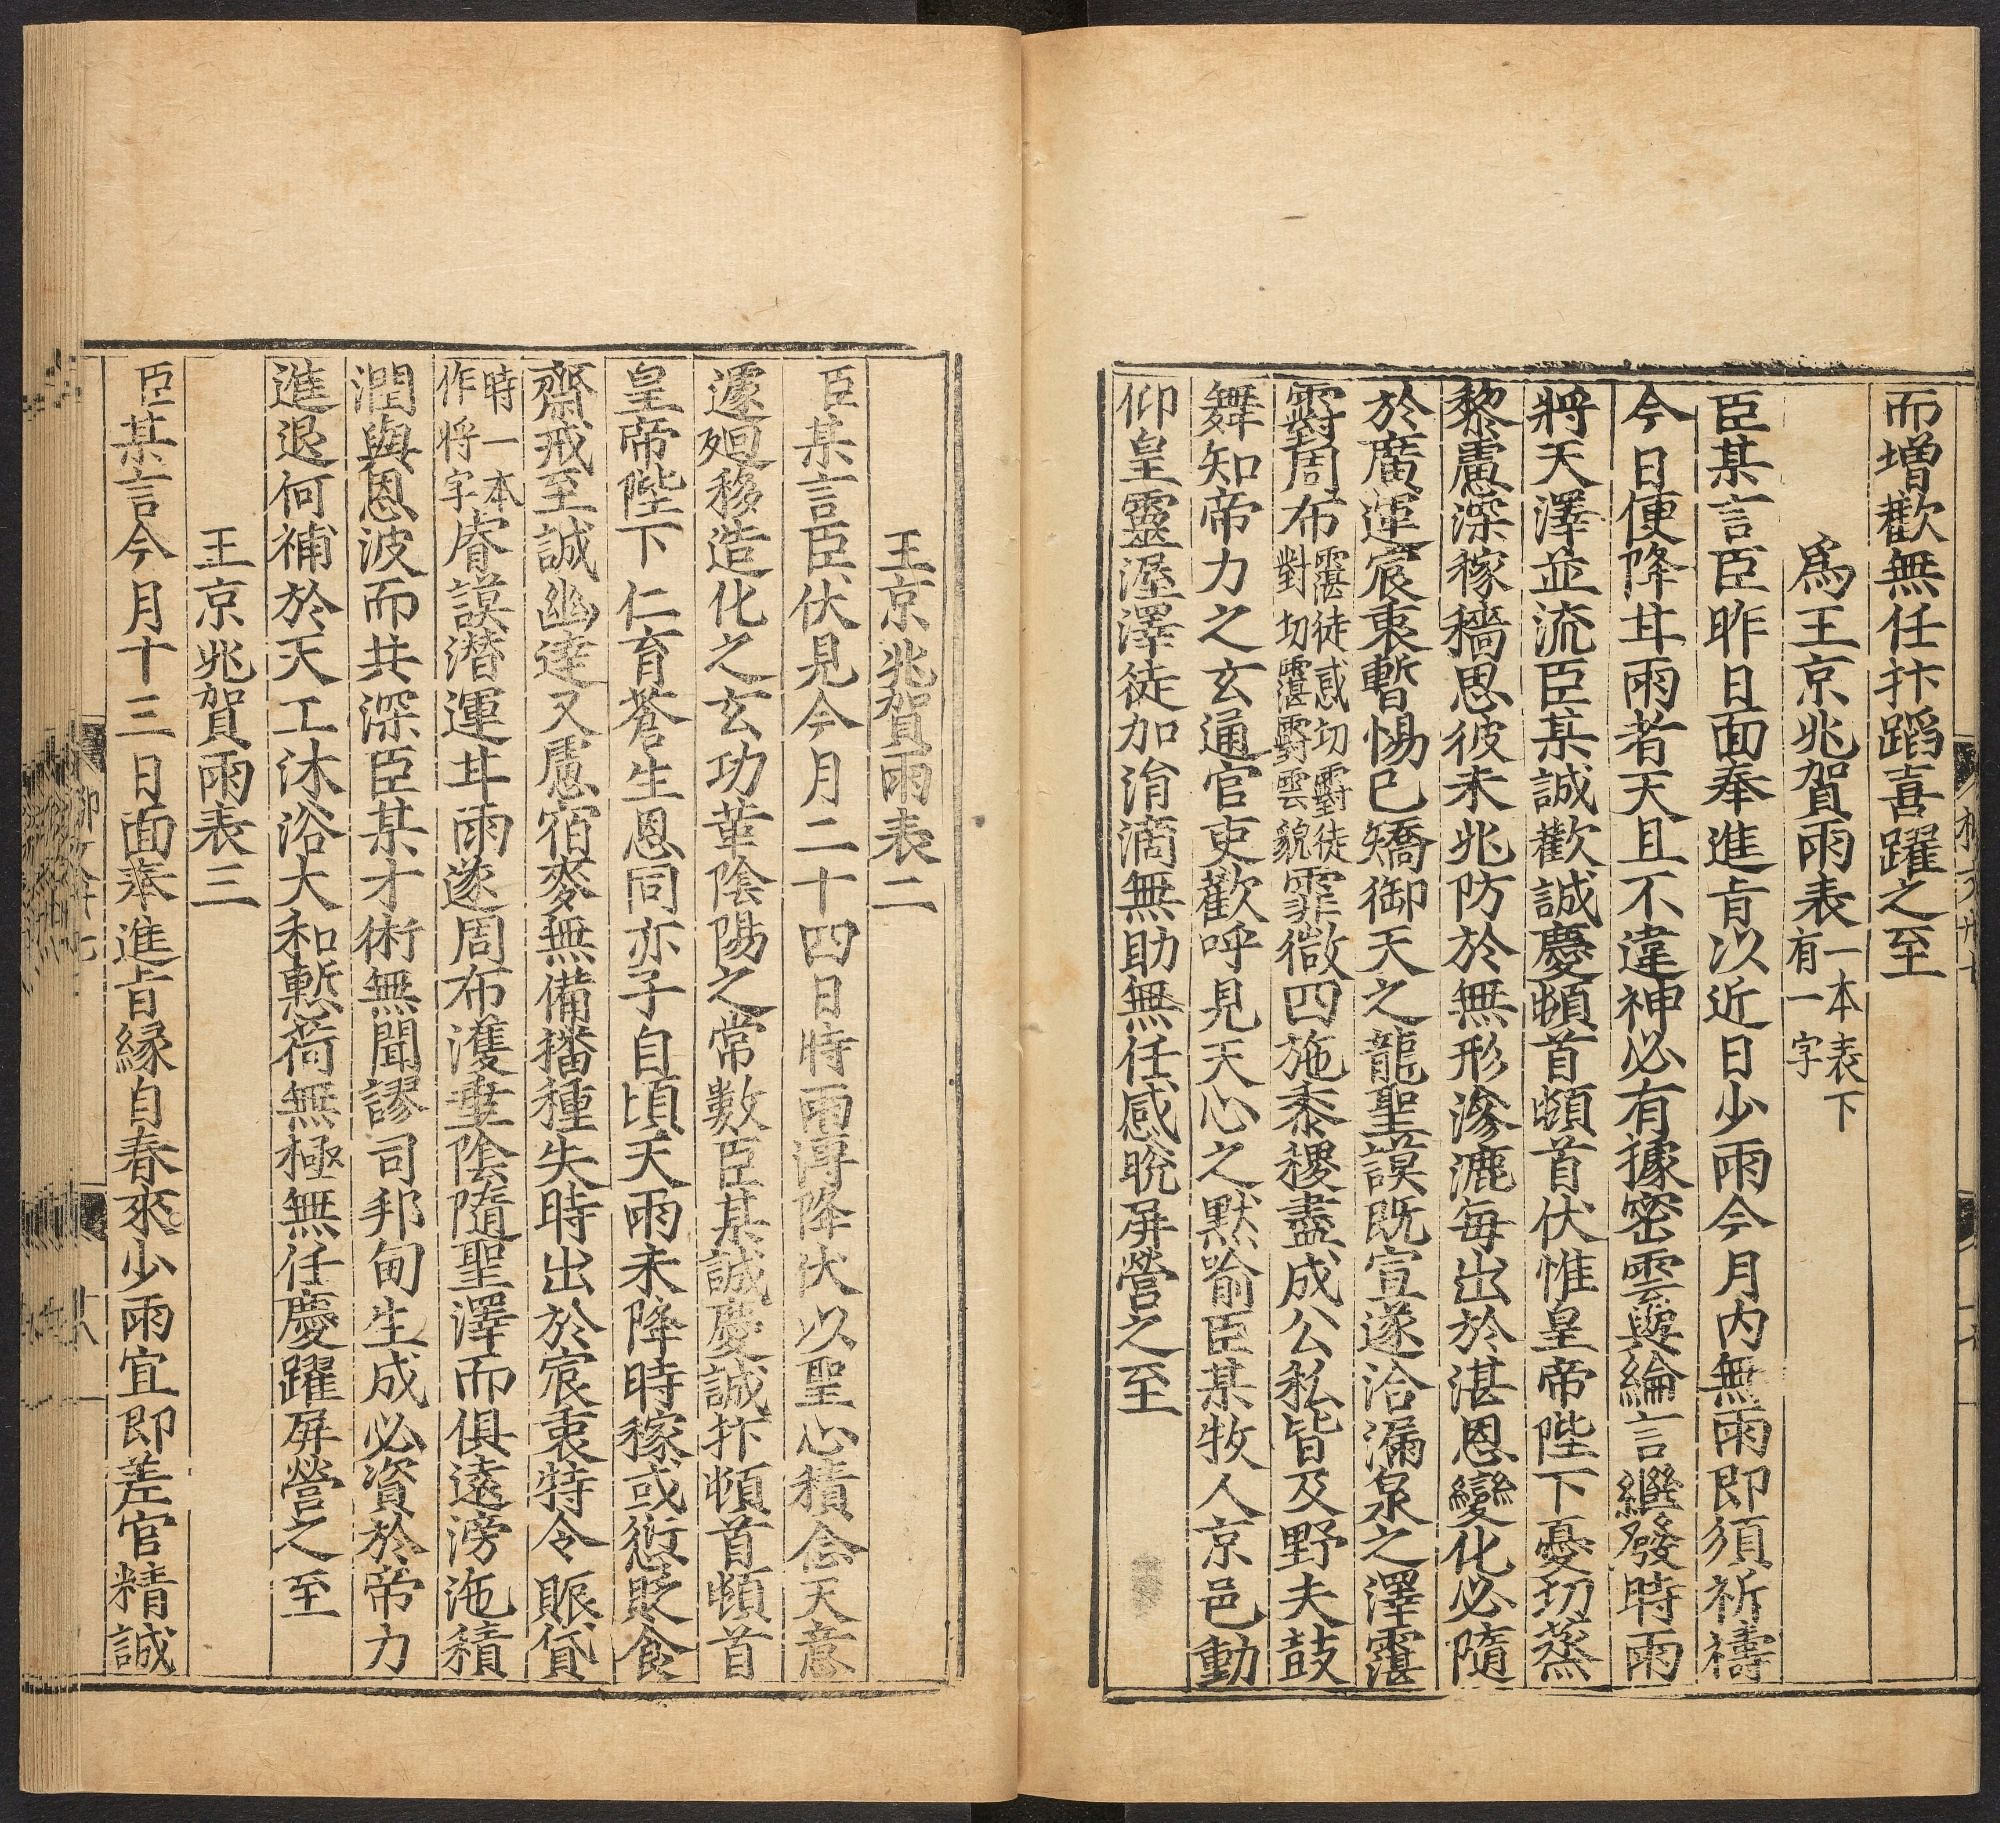 而增歡無任抃蹈喜躍之至
爲王京兆賀雨表一本表下有一字
臣某言臣昨日面奉進旨以近日少雨今月內無雨即須祈禱
今日便降甘雨者天且不違神必有據密雲與綸言繼發時雨
將天澤並流臣某誠歡誠慶頓首頓首伏惟皇帝陛下憂切蒸
黎慮深稼穡思彼未兆防於無形滲漉每出於湛恩變化必隨
於廣運宸衷暫惕已矯御天之龍聖謨既宣遂洽漏泉之澤霮
䨴周布霮徒感切䨴徒對切霮䨴雲貌霏微四施黍稷盡成公私皆及野夫鼓
舞知帝力之玄通官吏歡呼見天心之默喻臣某牧人京邑動
仰皇靈渥澤徒加涓滴無助無任感悅屏營之至
王京兆賀雨表二
臣某言臣伏見今月二十四日時雨溥降伏以聖心積念天意
遽廻移造化之玄功革陰陽之常數臣某誠慶誠抃頓首頓首
皇帝陛下仁育蒼生恩同赤子自頃天雨未降時稼或愆貶食
齋戒至誠幽達又慮宿麥無備播種失時出於宸衷特令賑貸
時一本作將字睿謨潛運甘雨遂周布濩垂陰隨聖澤而俱遠滂沲積
潤與恩波而共深臣某才術無聞謬司邦甸生成必資於帝力
進退何補於天工沐浴大和慙荷無極無任慶躍屏營之至
王京兆賀雨表三
臣某言今月十三日面奉進旨緣自春來少雨宜即差官精誠